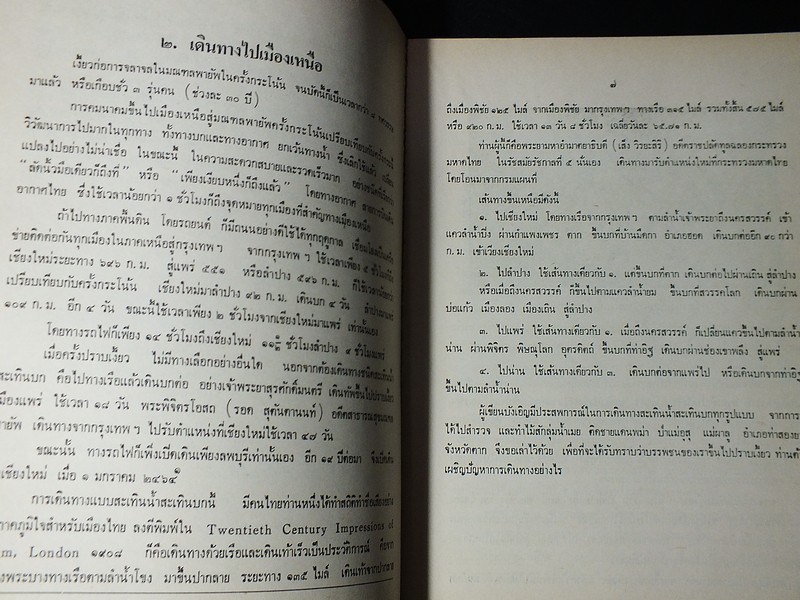 ๒. เดินทางไปเมืองเหนือ
เงี้ยวก่อการจลาจลในมณฑลพายัพในครั้งกระโน้น จนบัดนี้ก็เป็นเวลากว่า
มาแล้ว หรือเกือบชั่ว ๓ รุ่นคน (ช่วงละ ๓๐ ปี)
การคมนาคมขึ้นไปเมืองเหนือสู่มณฑลพายัพครั้งกระโน้นเปรียบเทียบกับครั้งกระนี้
วิวัฒนาการไปมากในทุกทาง ทั้งทางบกและทางอากาศ ยกเว้นทางน้ำ ซึ่งเลิกใช้แล้ว
แปลงไปอย่างไม่น่าเชื่อ ในขณะนี้ ในความสะดวกสบายและรวดเร็วมาก
"ลัดนิ้วมือเดียวก็ถึงที่" หรือ "เพียงเงียบหนึ่งก็ถึงแล้ว" โดยทางอากาศ
อากาศไทย ซึ่งใช้เวลาน้อยกว่า ๑ ชั่วโมงก็ถึงจุดหมายทุกเมืองที่สำคัญทางเมืองเหนือ
ถ้าไปทางภาคพื้นดิน โดยรถยนต์ ก็มีถนนอย่างดีใช้ได้ทุกฤดูกาล
ข่ายติดต่อกันทุกเมืองในภาคเหนือสู่กรุงเทพฯ จากกรุงเทพฯ ใช้เวลาเพียง ๙ ชั่วโมงก็ถึง
เชียงใหม่ระยะทาง ๖๙๖ ก.ม. สู่แพร่ ๕๕๑ หรือลำปาง ๕๙๖ ก.ม.
เปรียบเทียบกับครั้งกระโน้น เชียงใหม่มาลำปาง ๙๒ ก.ม. เดินบก ๔ วัน
๑๐๙ ก.ม. อีก ๔ วัน ขณะนี้ใช้เวลาเพียง ๒ ชั่วโมงจากเชียงใหม่มาแพร่ เท่านั้นเอง
โดยทางรถไฟก็เพียง ๑๔ ชั่วโมงถึงเชียงใหม่ ชั่วโมงลำปาง ๙ ชั่วโมงแพร่
เมื่อครั้งปราบเงี้ยว ไม่มีทางเลือกอย่างอื่นใด นอกจากต้องเดินทาง
สะเทินบก คือไปทางเรือแล้วเดินบกต่อ อย่างเจ้าพระยาสุรศักดิ์มนตรี เดินทัพขึ้นไปปราบเงี้ยว
เมืองแพร่ ใช้เวลา ๑๘ วัน พระพิจิตรโอสถ (รอด สุตันตานนท์) อดีตสาธารณสุขมณฑล
ายัพ เดินทางจากกรุงเทพฯ ไปรับตำแหน่งที่เชียงใหม่ใช้เวลา ๔๗ วัน
ขณะนั้น ทางรถไฟก็เพิ่งเปิดเดินเพียงลพบุรีเท่านั้นเอง อีก ๑๙ ปีต่อมา จึงเปิดเดิน
เชียงใหม่ เมื่อ ๑ มกราคม ๒๔๖๔
การเดินทางแบบสะเทินน้ำสะเทินบกนี้ มีคนไทยท่านหนึ่งได้ทำสถิติทำชื่อเสียงอย่าง
าคภูมิใจสำหรับเมืองไทย ลงตีพิมพ์ใน Twentieth Century Impressions of
m, London 1908 ก็คือเดินทางด้วยเรือและเดินเท้าเร็วเป็นประวัติการณ์ คือจาก
งพระบางทางเรือตามลำน้ำโขง มาขึ้นปากลาย ระยะทาง ๑๓๕ ไมล์ เดินเท้าจากปากลาย
๗
ถึงเมืองพิชัย ๑๒๕ ไมล์ จากเมืองพิชัย มากรุงเทพฯ ทางเรือ ๓๑๕ ไมล์ รวมทั้งสิ้น ๕๗๕ ไมล์
หรือ ๙๒๐ ก.ม. ใช้เวลา ๑๓ วัน ๘ ชั่วโมง เฉลี่ยวันละ ๖๕.๗๑ ก.ม.
ท่านผู้นี้ก็คือพระยามหาอำมาตยาธิบดี (เส็ง วิรยะสิริ) อดีตราชปลัดทูลฉลองกระทรวง
มหาดไทย ในรัชสมัยรัชกาลที่ ๕ นั่นเอง เดินทางมารับตำแหน่งใหม่ที่กระทรวงมหาดไทย
โดยโอนมาจากกรมแผนที่
เส้นทางขึ้นเหนือมีดังนี้
๑. ไปเชียงใหม่ โดยทางเรือจากกรุงเทพฯ ตามลำน้ำเจ้าพระยาถึงนครสวรรค์ เข้า
แควลำน้ำปิง ผ่านกำแพงเพชร ตาก ขึ้นบกที่บ้านมืดกา อำเภอฮอด เดินบกต่ออีก ๙๐ กว่า
ก.ม. เข้าเวียงเชียงใหม่
๒. ไปลำปาง ใช้เส้นทางเดียวกับ ๑. แต่ขึ้นบกที่ตาก เดินบกต่อไปผ่านเถิน สู่ลำปาง
หรือเมื่อถึงนครสวรรค์ ก็ขึ้นไปตามแควลำน้ำยม ขึ้นบกที่สวรรคโลก เดินบกผ่าน
บ่อแก้ว เมืองลอง เมืองเถิน สู่ลำปาง
๓. ไปแพร่ ใช้เส้นทางเดียวกับ ๑. เมื่อถึงนครสวรรค์ ก็เปลี่ยนแควขึ้นไปตามลำน้ำ
น่าน ผ่านพิจิตร พิษณุโลก อุตรดิตถ์ ขึ้นบกที่ท่าอิฐ เดินบกผ่านช่องเขาพลึง สู่แพร่
๔. ไปน่าน ใช้เส้นทางเดียวกับ ๓. เดินบกต่อจากแพร่ไป หรือเดินบกจากท่าอิฐ
ขึ้นไปตามลำน้ำน่าน
ผู้เขียนบังเอิญมีประสพการณ์ในการเดินทางสะเทินน้ำสะเทินบกทุกรูปแบบ จากการ
ได้ไปสำรวจ และทำไม้สักลุ่มน้ำเมย ติดชายแดนพม่า ป่าแม่อุสุ แม่ผาลู อำเภอท่าสองยาง
จังหวัดตาก จึงขอเล่าไว้ด้วย เพื่อที่จะได้รับทราบว่าบรรพชนของเราขึ้นไปปราบเงี้ยว ท่านต้อง
เผชิญปัญหาการเดินทางอย่างไร